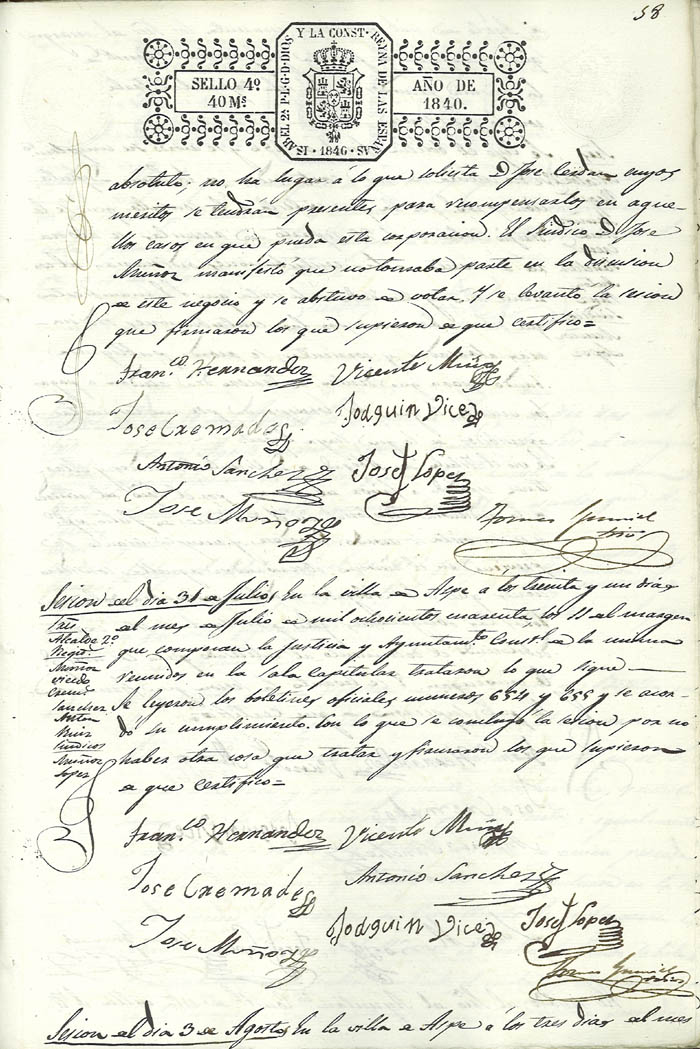 58
ISABEL 2ª P.L.G.D.DIOS Y LA CONST. REYNA DE LAS ESPAÑAS
SELLO 4º
40 Ms
AÑO DE
1840.
1840
absoluto; no ha lugar á lo que solicita D. Jose Cerdan cuyos
meritos se tendrán presentes para recompensarlos en aque-
llos casos en que pueda esta corporacion. El Sindico D. Jose
Muñoz manifestó que no tomaba parte en la discusion
de este negocio y se abstuvo de votar. Y se levantó la sesion
que firmaron los que supieron de que certifico=
Fran.co Hernandez
Vicente Muñoz
Jose Cremades
Joaquin Vicedo
Antonio Sánchez
Josef Lopez
Jose Muñoz
Tomas
Sesion del dia 31 de Julio
En la villa de Aspe á los treinta y un dias
del mes de Julio de mil ochocientos cuarenta, los SS del margen
que componen la Justicia y Ayuntamto Constl de la misma
reunidos en la sala capitular trataron lo que sigue—
Se leyeron los boletines oficiales numeros 654 y 655 y se acor-
dó su cumplimiento. Con lo que se concluyó la sesion por no
haber otra cosa que tratar y firmaron los que supieron
de que certifico=
Alcalde 2º
Regs.
Muñoz
Vicedo
Crem.
Sanchez
Anton
Ruiz
Sindicos
Muñoz
Lopez
Fran.co Hernandez
Vicente Muñoz
Jose Cremades
Antonio Sanchez
Jose Muñoz
Joaquin Vicedo
Josef Lopez
Tomas
Sesion del dia 3 de Agosto
En la villa de Aspe á los tres dias del mes